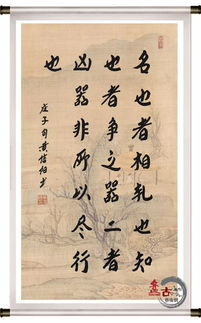 名也者相轧也知
也者争之器二者
凶器非所以尽行
也
庄子句
古